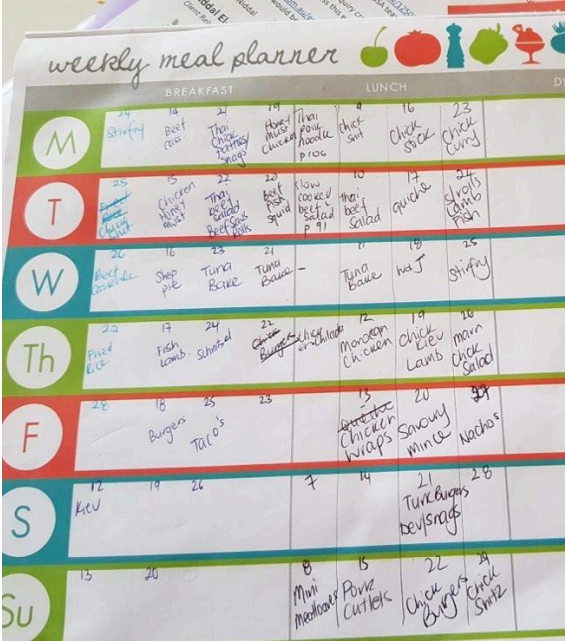 weekly meal planner
BREAKFAST
LUNCH
M
24
Stirfry
14
Beef
21
Thai
Chick
Patties
snags
19
Honey
must
Chicken
Thai
Pork
noodle
p 106
9
chick
16
Chick
stick
23
Chick
curry
T
25
Fried
Rice
15
Chicken
Honey
must
22
Thai
beef
Salad
Beef Saus
Rolls
20
Beef
Fish
squid
slow
cooked
beef
salad
p 91
10
Thai
beef
Salad
17
quiche
24
S/rolls
Lamb
Fish
W
26
Beef
16
Shep
pie
23
Tuna
Bake
21
Tuna
Bake
11
Tuna
bake
18
25
Stirfry
Th
27
Fried
Rice
17
Fish
Lamb
24
Schnitzel
22
Chick
Burgers
Chick
enchilada
12
Moroccan
Chicken
19
Chick
Kiev
Lamb
26
marn
Chick
Salad
F
28
18
Burgers
25
Taco's
23
13
Chicken
wraps
20
Savoury
mince
27
Nachos
S
12
Kiev
19
26
7
14
21
Turk Burgers
Dev/snags
28
Su
13
20
8
Mini
meatloaves
15
Pork
Cutlets
22
Chick
Burgers
29
Chick
Snitz